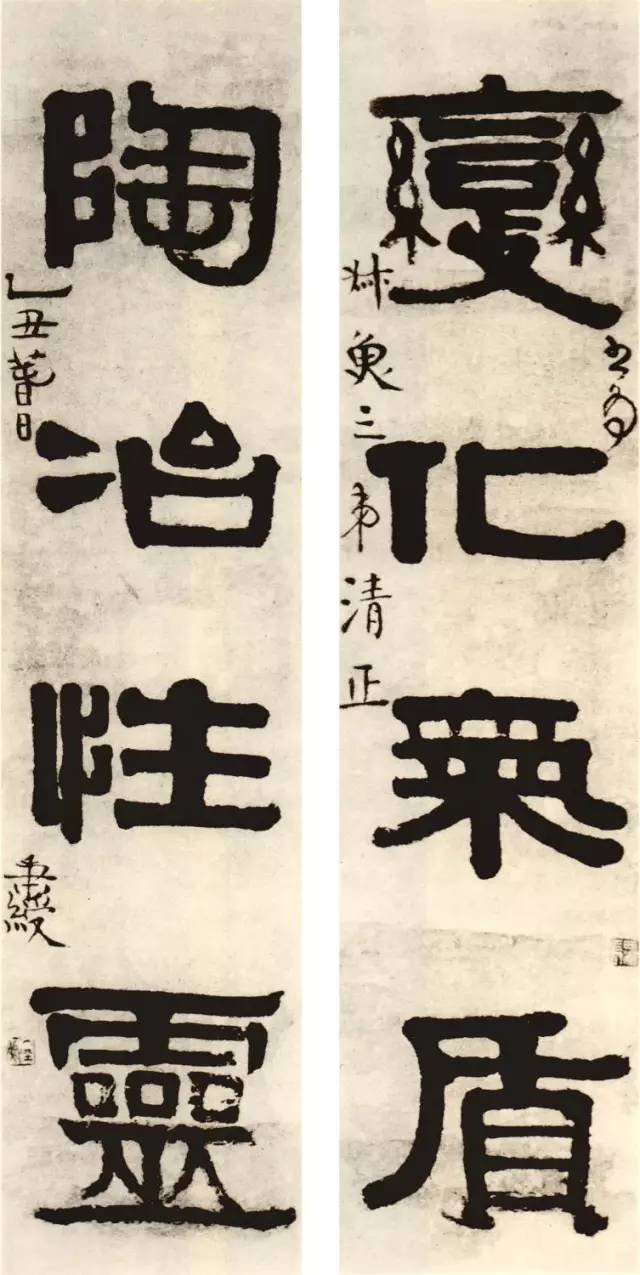 變化氣質
書為
三弟清正
陶冶性靈
乙丑萅日
秉綬